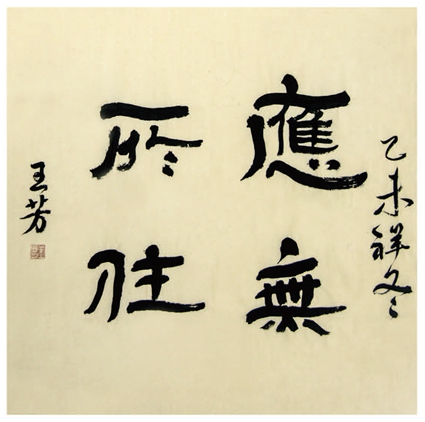 乙未祥冬
應無
所住
王芳